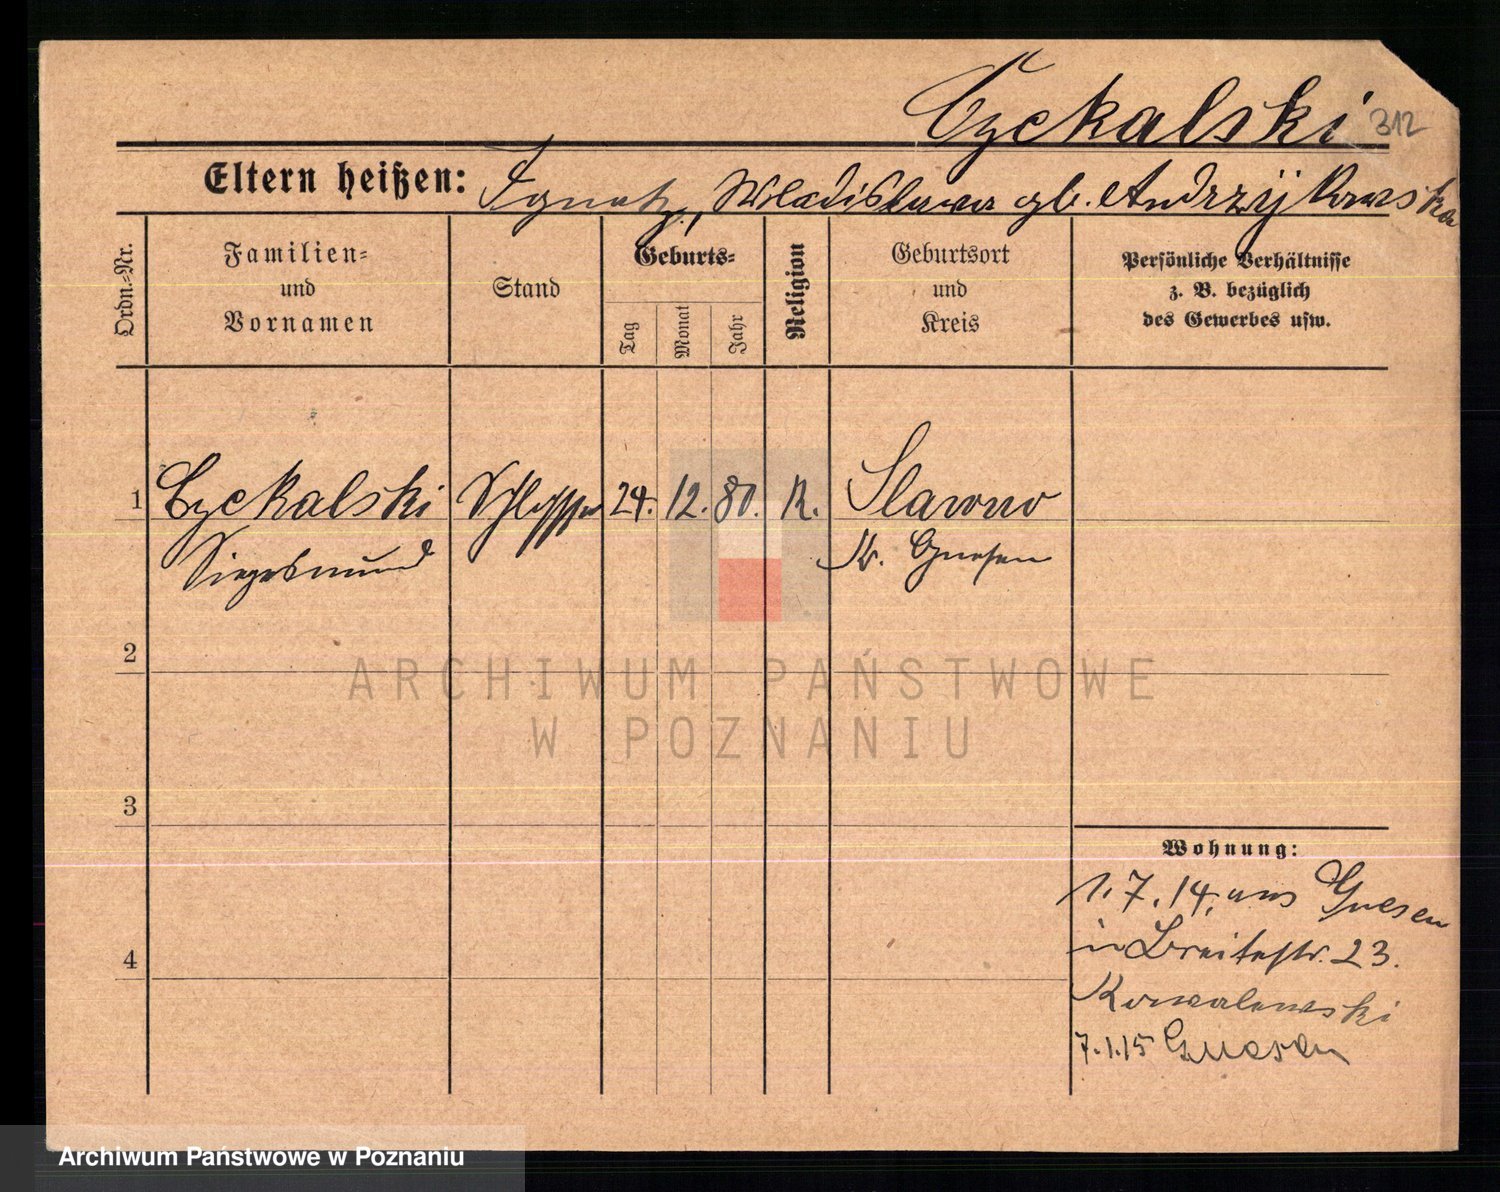 Czekalski 312
Eltern heißen: Ignatz, Wladislawa gb. Andrzejkowska
Ordn.=Nr.
Familien=
und
Vornamen
Stand
Geburts=
Tag
Monat
Jahr
Religion
Geburtsort
und
Kreis
Persönliche Verhältnisse
z. B. bezüglich
des Gewerbes usw.
1 Czekalski Schlosser 24. 12. 80. K. Slawno
Siegesmund Kr. Gnesen
2
3
4
Wohnung:
1.7.14. aus Gnesen
in Breitestr. 23.
Kowalewski
7.1.15 Gnesen
ARCHIWUM PAŃSTWOWE
W POZNANIU
Archiwum Państwowe w Poznaniu